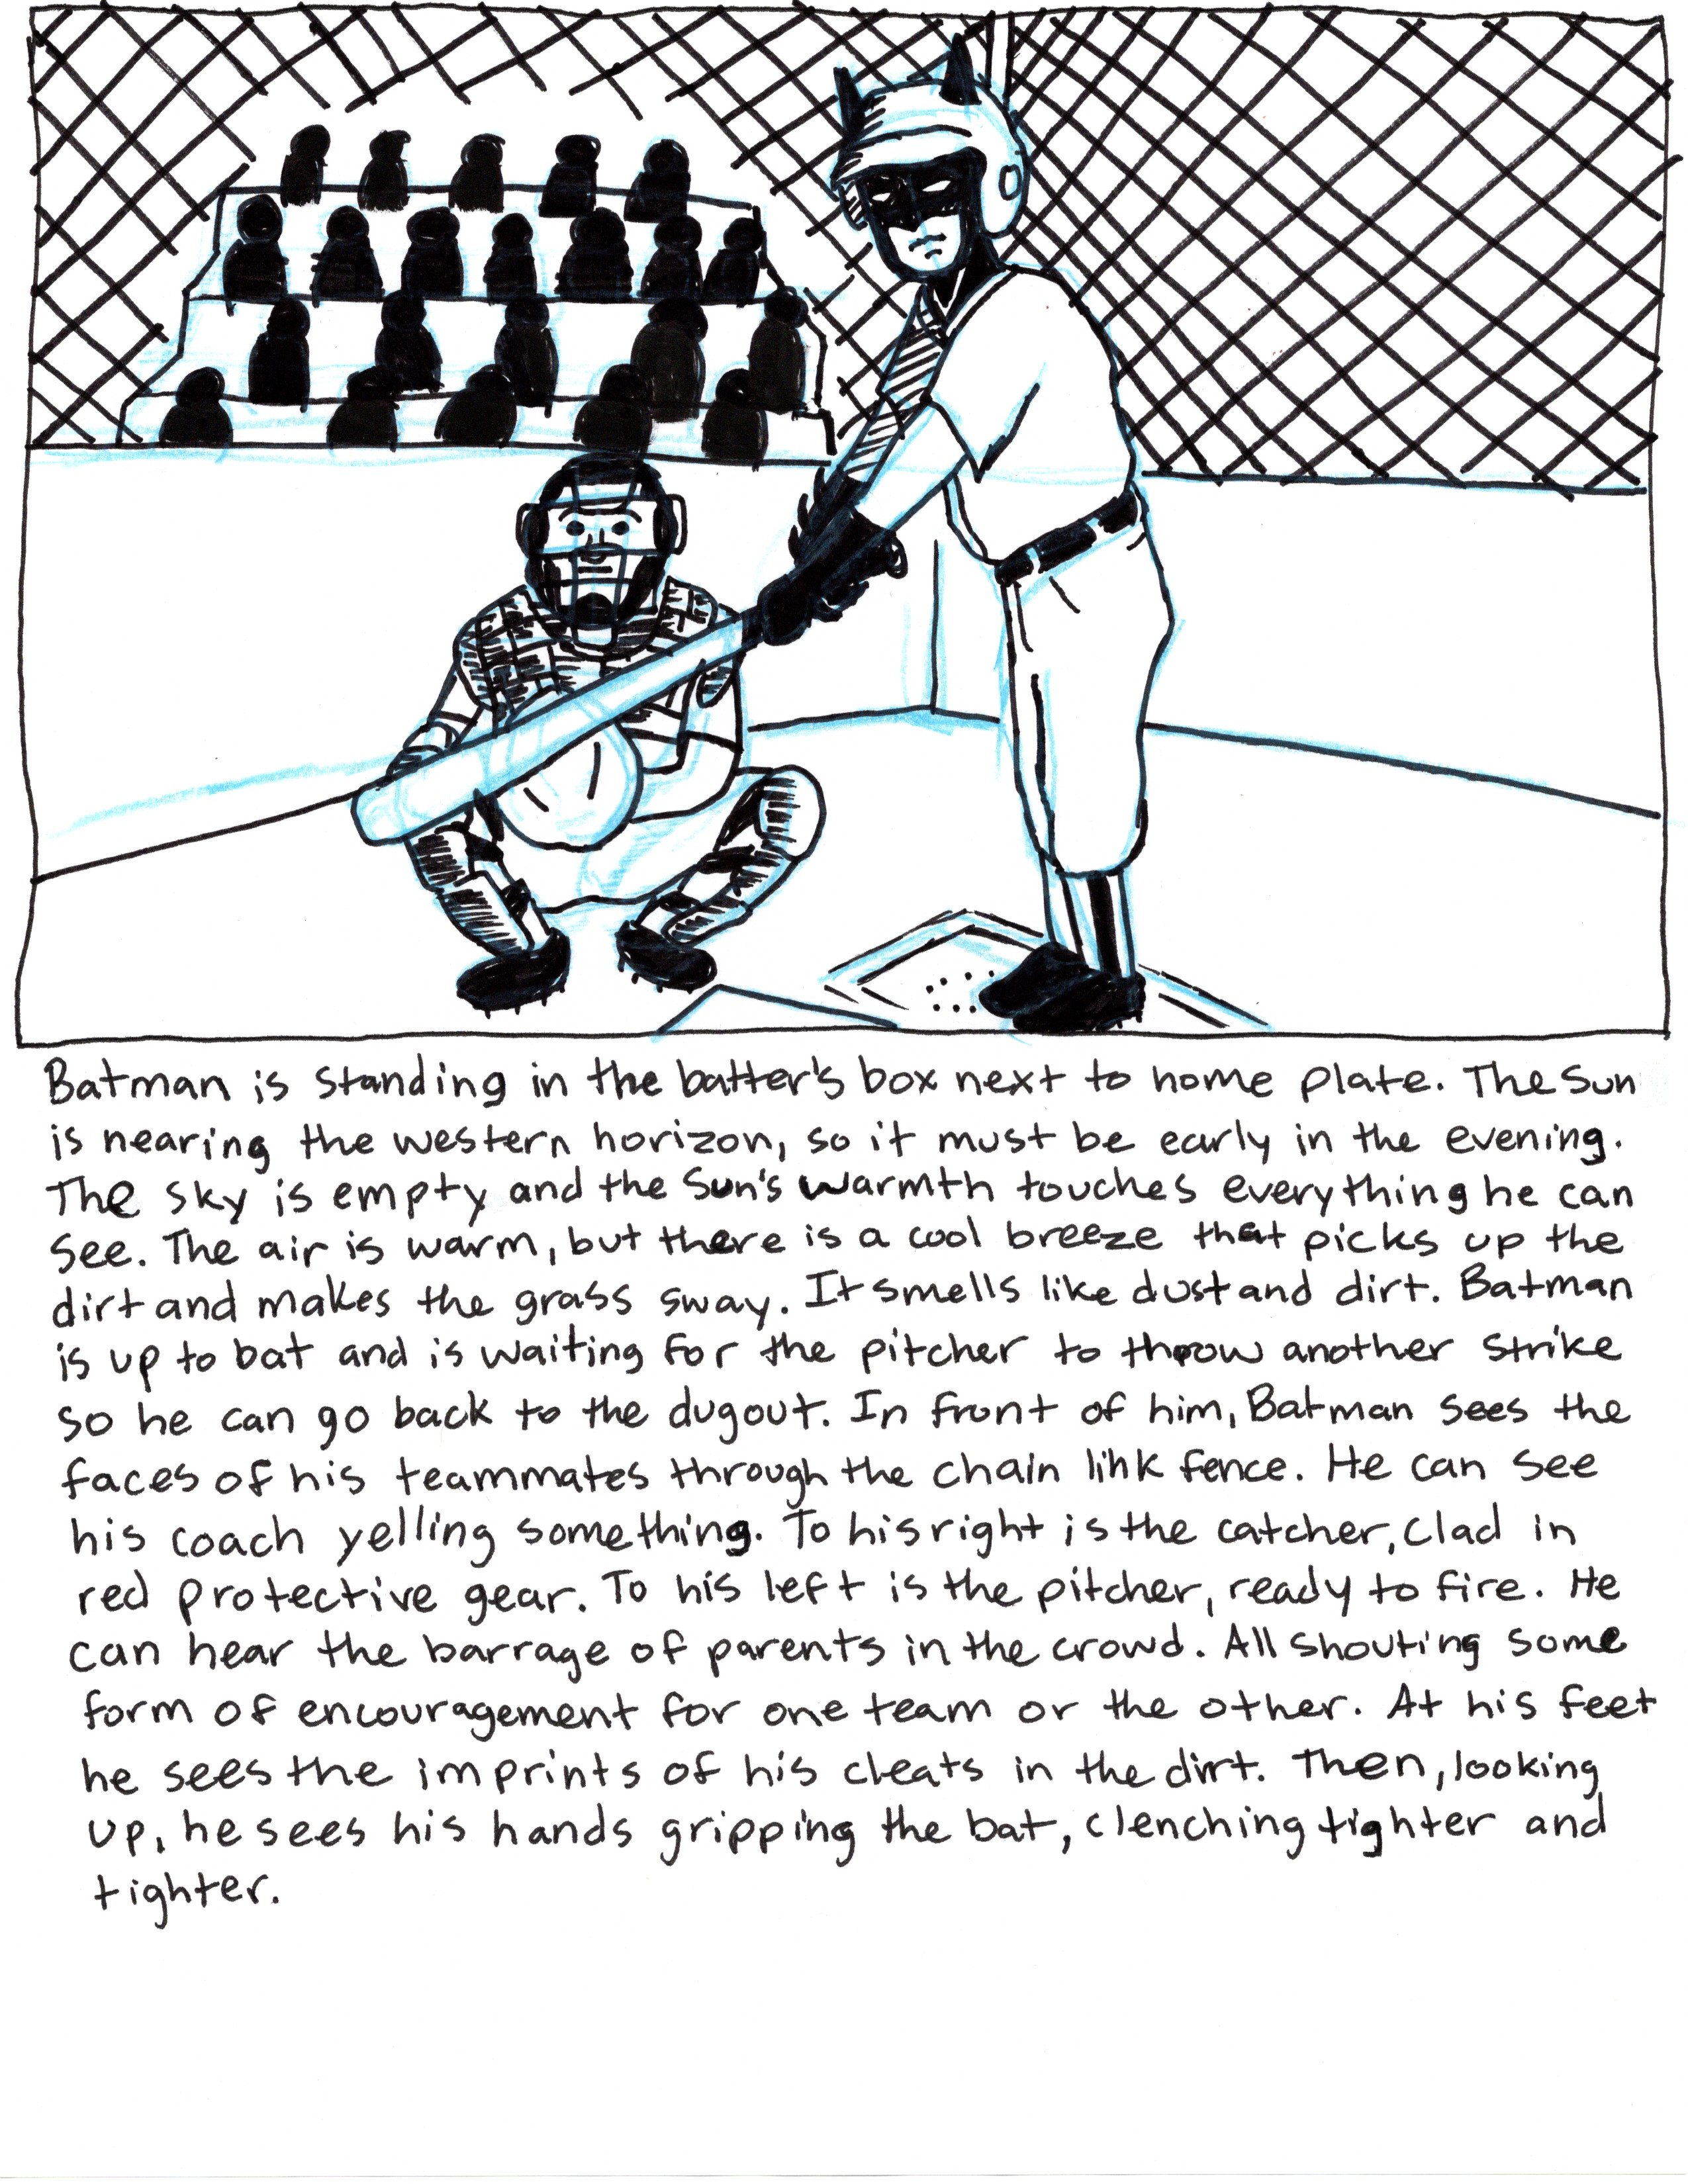 Batman is standing in the batter's box next to home plate. The Sun
is nearing the western horizon, so it must be early in the evening.
The sky is empty and the Sun's warmth touches everything he can
see. The air is warm, but there is a cool breeze that picks up the
dirt and makes the grass sway. It smells like dust and dirt. Batman
is up to bat and is waiting for the pitcher to throw another strike
so he can go back to the dugout. In front of him, Batman sees the
faces of his teammates through the chain link fence. He can see
his coach yelling something. To his right is the catcher, clad in
red protective gear. To his left is the pitcher, ready to fire. He
can hear the barrage of parents in the crowd. All shouting some
form of encouragement for one team or the other. At his feet
he sees the imprints of his cleats in the dirt. Then, looking
up, he sees his hands gripping the bat, clenching tighter and
tighter.